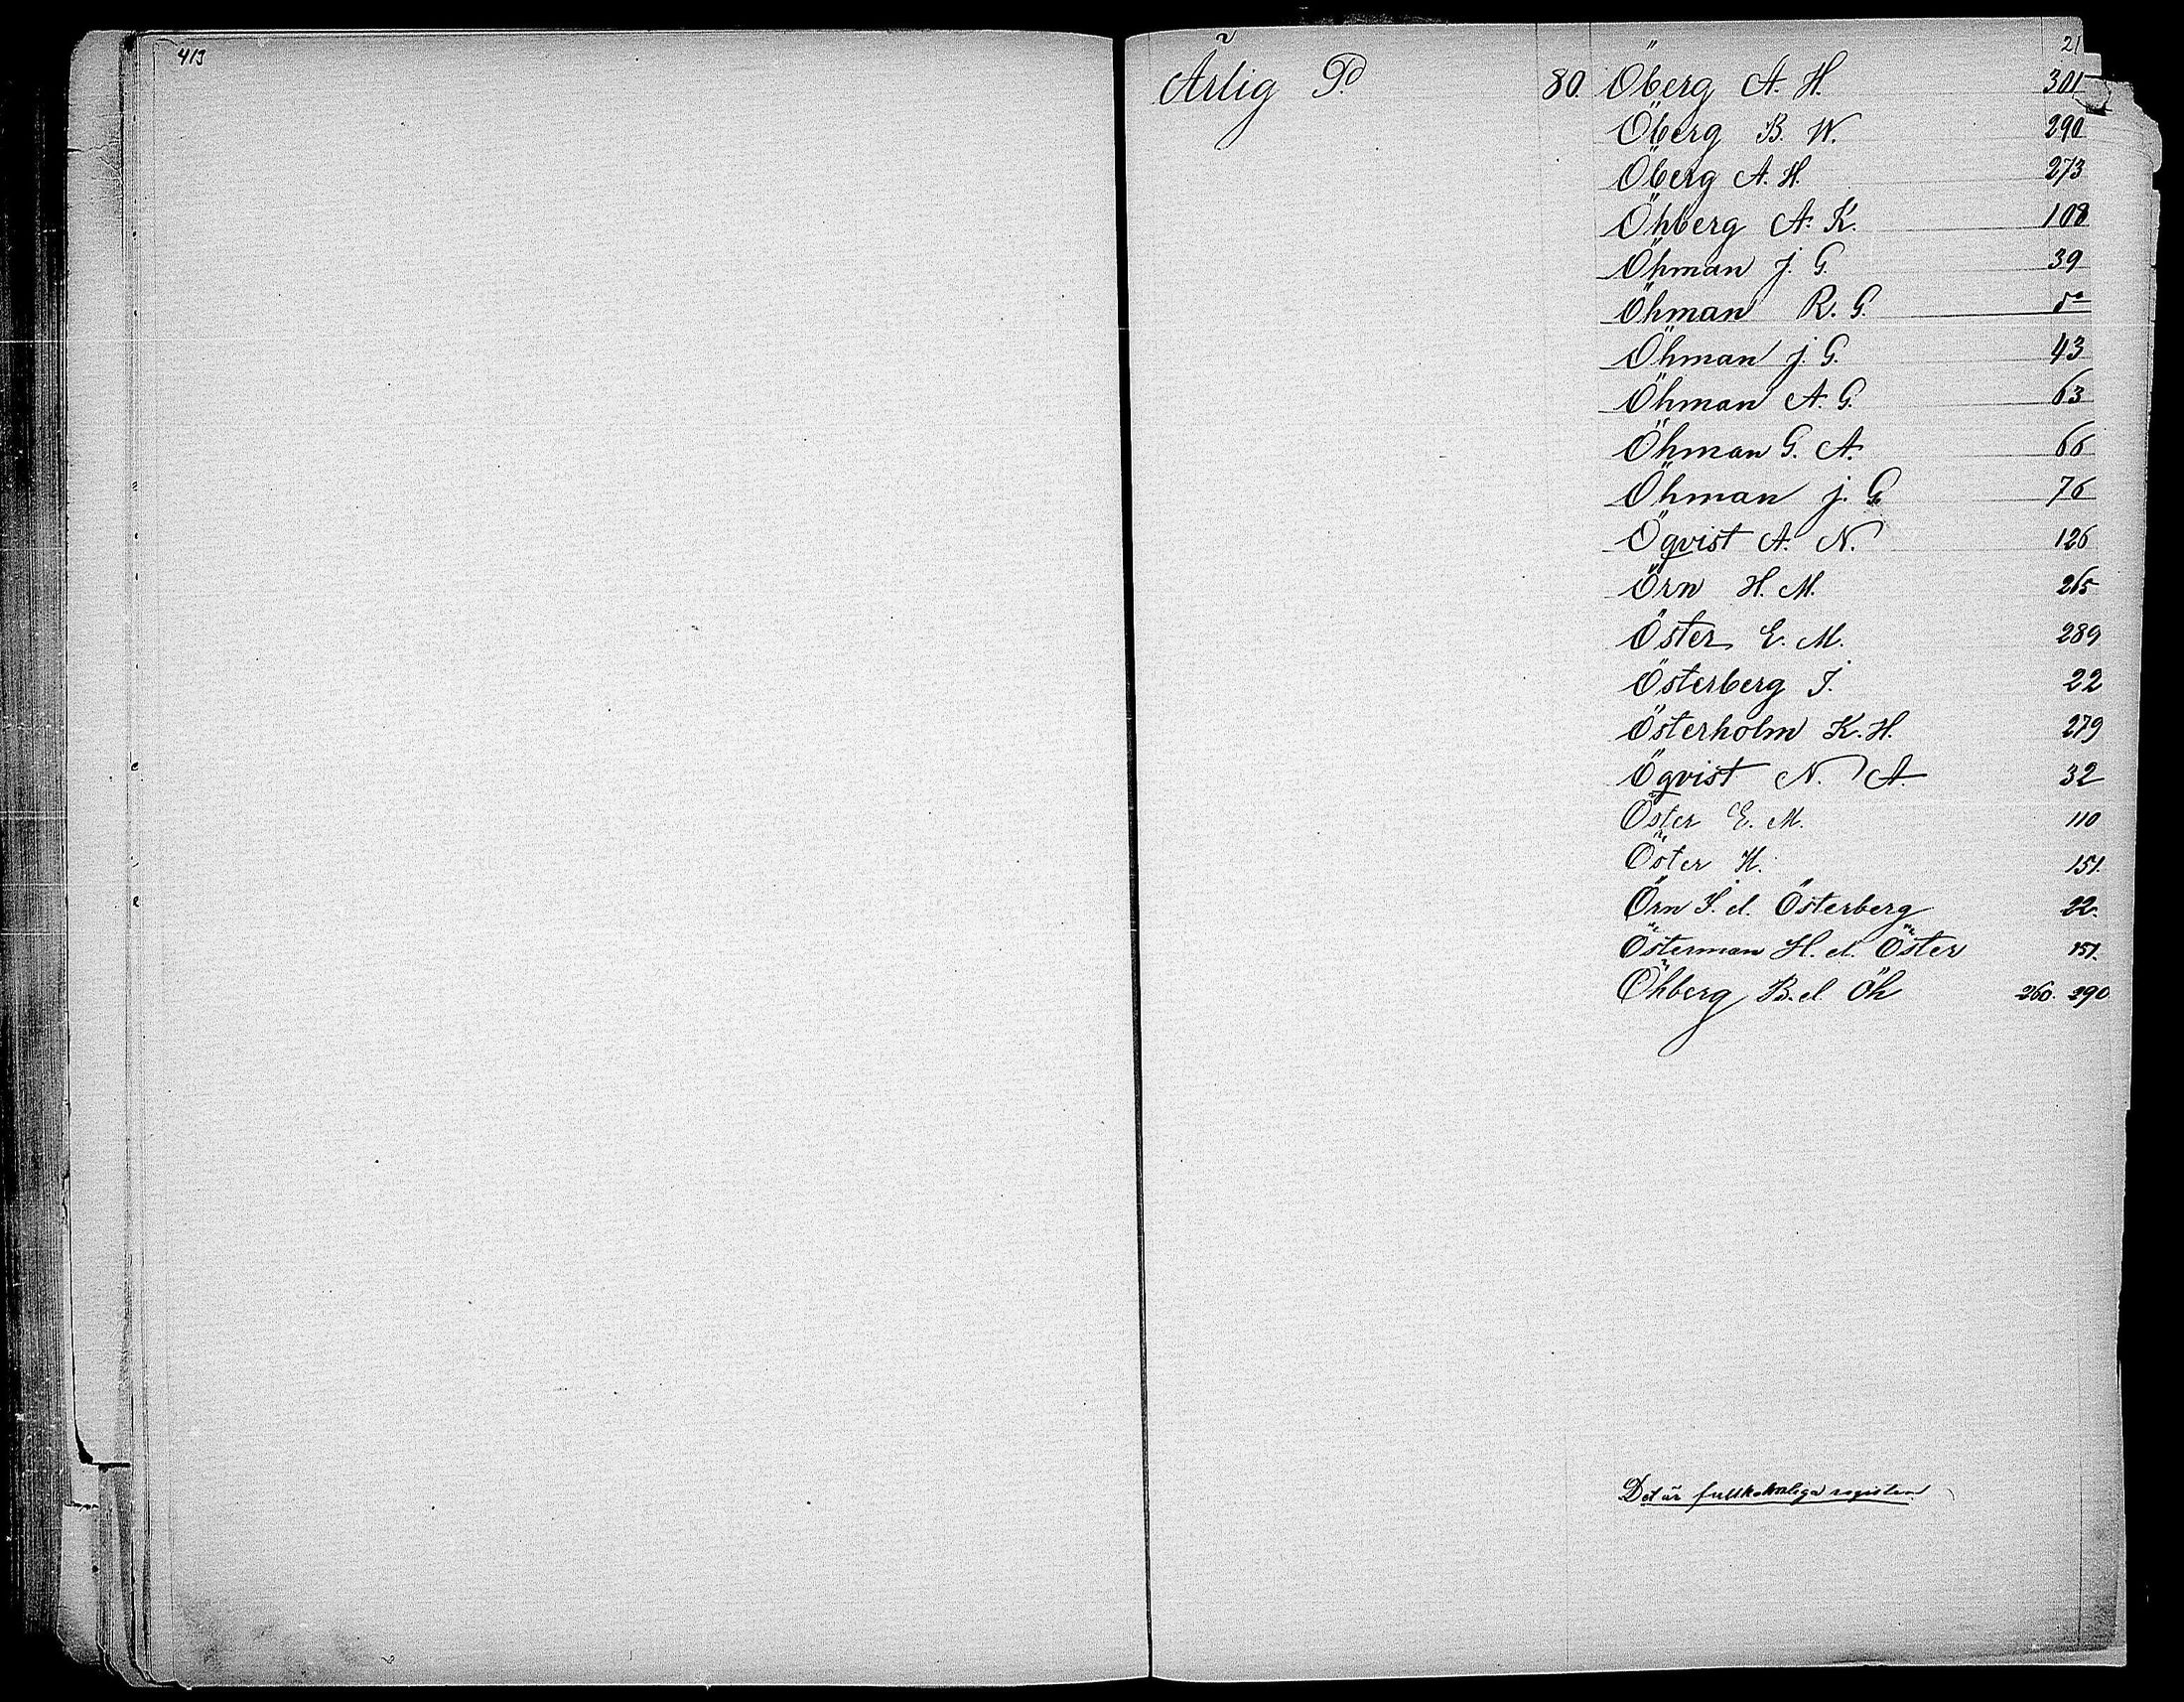 413
21
Ärlig P. 80.
Öberg A. H. 301
Öberg B. W. 290
Öberg A. H. 273
Öhberg A. K. 108
Öhman J. G. 39
Öhman R. G. do
Öhman J. G. 43
Öhman A. G. 63
Öhman G. A. 66
Öhman J. G. 76
Öqvist A. N. 126
Örn H. M. 265
Öster E. M. 289
Österberg J. 22
Österholm K. H. 279
Öqvist N. A. 32
Öster E. M. 110
Öster H. 151.
Örn J. el. Österberg 22.
Österman H. el. Öster 151.
Öhberg B. el. Öh 260. 290
Det är fullkomliga registen